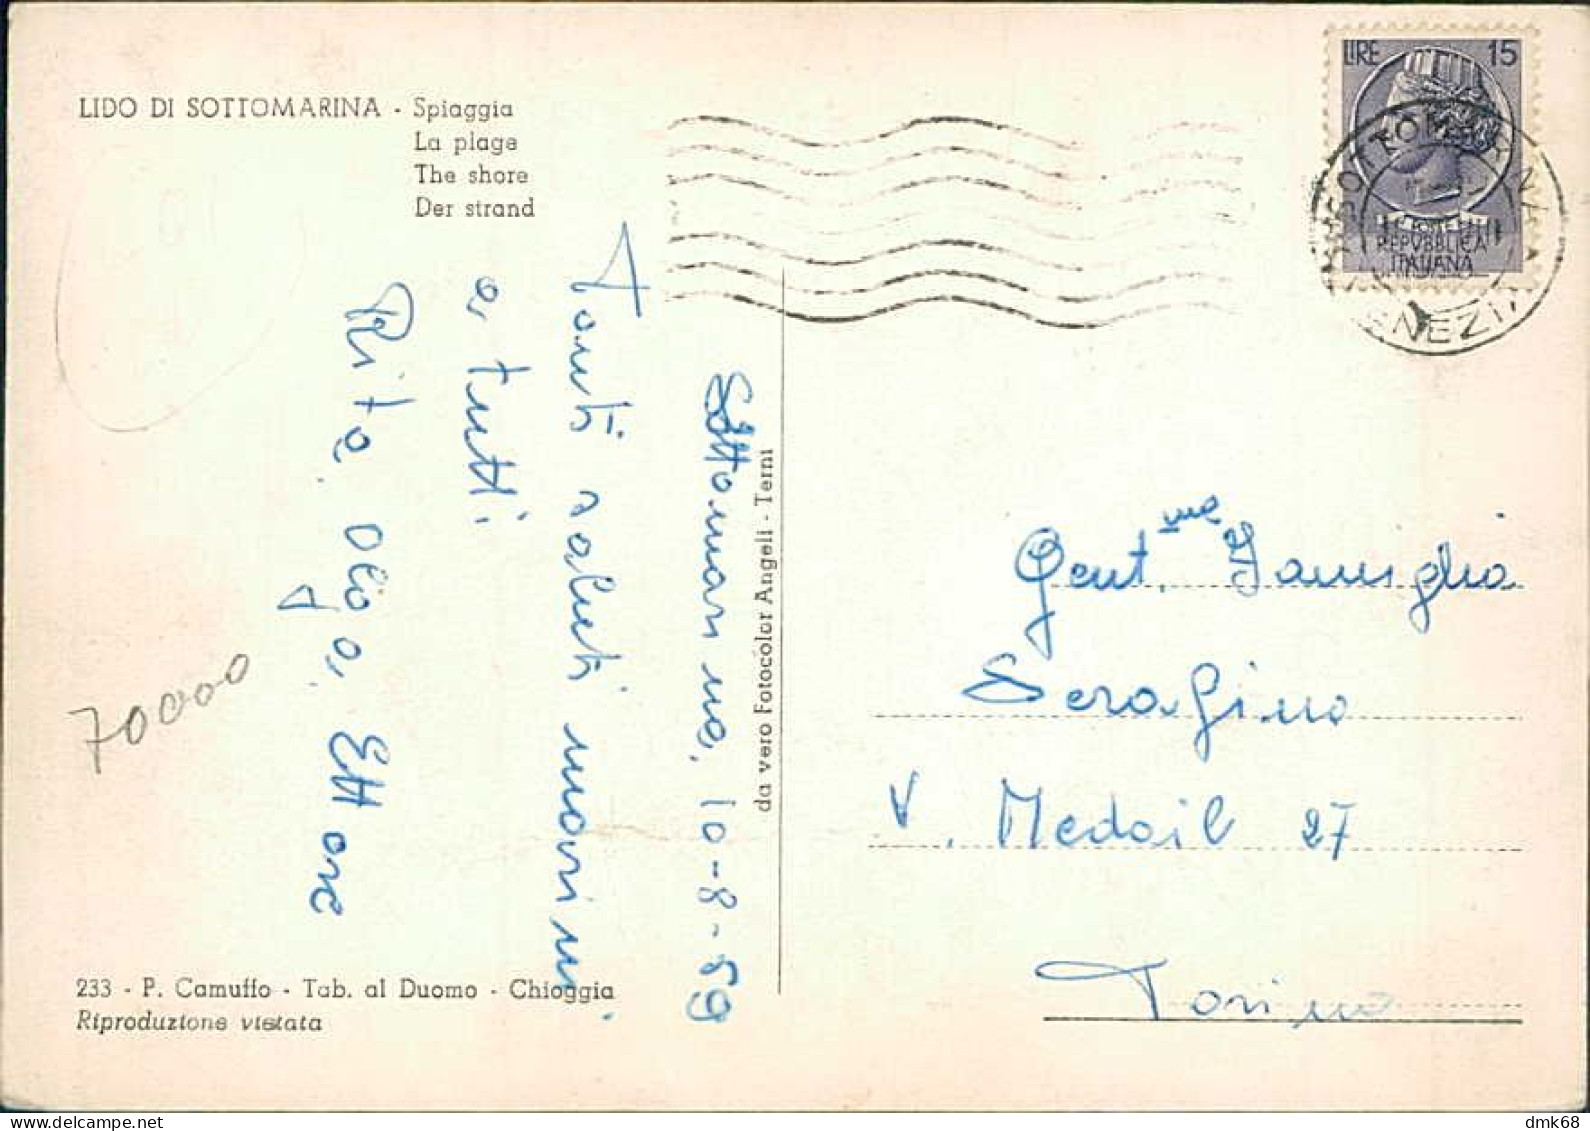 LIDO DI SOTTOMARINA - Spiaggia
La plage
The shore
Der strand
LIRE 15
POSTE
REPVBBLICA
ITALIANA
SOTTOMARINA
VENEZIA
Sottomarina, 10-8-59
Tanti saluti marini
a tutti.
Rita, Olga, Ettore
70000
da vero Fotocolor Angeli - Terni
Gent.me Famiglia
Serafino
V. Medail 27
Torino
233 - P. Camuffo - Tab. al Duomo - Chioggia
Riproduzione vietata
dmk68